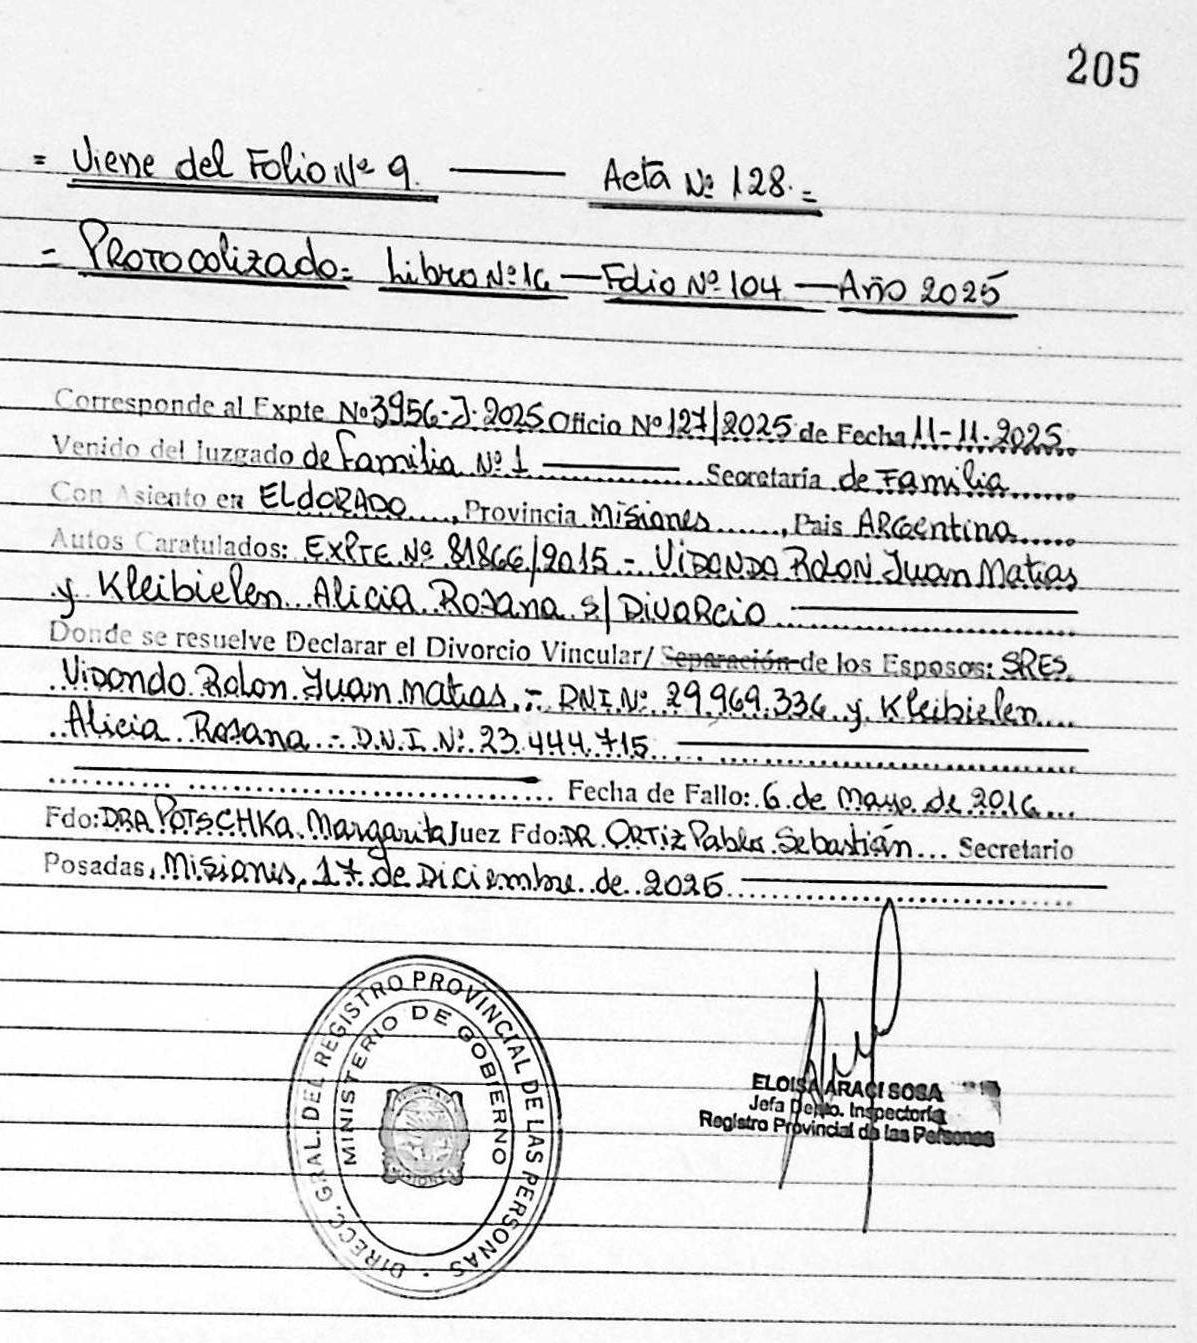 205
= Viene del Folio Nº 9. — Acta Nº 128. =
= Protocolizado = Libro Nº 1G — Folio Nº 104 — Año 2025
Corresponde al Expte Nº 3956-J-2025 Oficio Nº 127/2025 de Fecha 11-11-2025.
Venido del Juzgado de Familia Nº 1 — Secretaría de Familia
Con Asiento en ELDORADO, Provincia Misiones, Pais ARGentina
Autos Caratulados: EXPTE Nº 81866/2015 - Juan Matias
y Kleibielen Alicia Rosana s/ Divorcio
Donde se resuelve Declarar el Divorcio Vincular/ Separación de los Esposos: SRES.
Juan Matias, - DNI. Nº 29.969.336 y Kleibielen
Alicia Rosana - D.N.I. Nº 23.444.715
Fecha de Fallo: 6 de Mayo de 2016
Fdo: DRA POTSCHKA Margarita Juez Fdo: DR. ORTIZ Pablo Sebastián... Secretario
Posadas, Misiones, 17 de Diciembre de 2025
DIRECC. GRAL. DEL REGISTRO PROVINCIAL DE LAS PERSONAS
MINISTERIO DE GOBIERNO
ELOISA ARACI SOSA
Jefa Depto. Inspectoría
Registro Provincial de las Personas